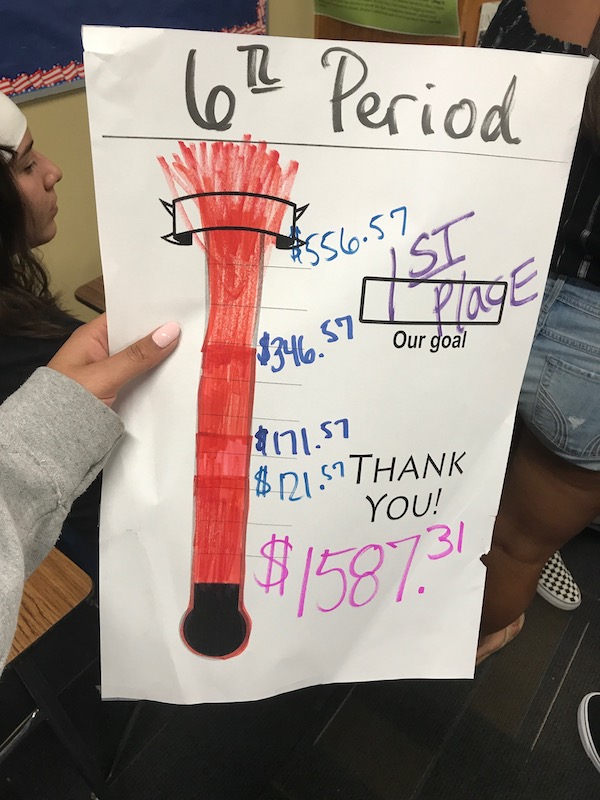 6TH Period
$556.57
1ST
PlacE
Our goal
$346.57
$171.57
$121.57
THANK
YOU!
$1587.31